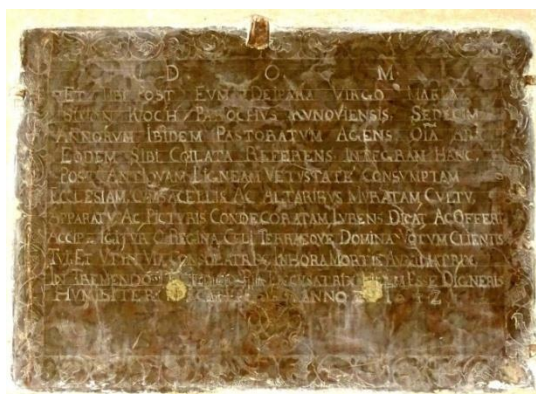 D. O. M.
ET TIBI POST EUM DEIPARA VIRGO MARIA
SIMON KOCH PAROCHVS KVNOVIENSIS, SEDECIM
ANNORVM IBIDEM PASTORATVM AGENS OIA AB
EODEM SIBI COLLATA REFERENS INTEGRAM HANC,
POST ANTIQVAM LIGNEAM VETVSTATE CONSVMPTAM
ECCLESIAM, CVM SACELLIS AC ALTARIBVS MVRATAM CVLTV,
APPARATV AC PICTVRIS CONDECORATAM LVBENS DICAT AC OFFERT
ACCIPE IGITVR O REGINA CELI TERRAEQVE DOMINA VOTVM CLIENTIS
TVI ET VT IN VITA CONSOLATRIX IN HORA MORTIS AVXILIATRIX
IN TREMENDO ESSE DIGNERIS
HVMILITER ANNO